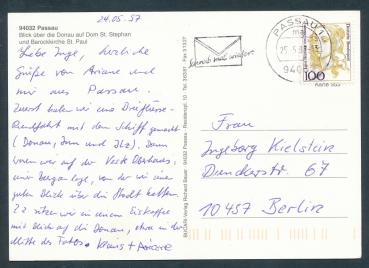 24.05.97
94032 Passau
Blick über die Donau auf Dom St. Stephan
und Barockkirche St. Paul
Liebe Inge, herzliche
Grüße von Ariane und
mir aus Passau.
Zuerst haben wir eine Dreiflüsse-
Rundfahrt mit dem Schiff gemacht
(Donau, Inn und Ilz). Dann
waren wir auf der Veste Oberhaus,
eine Burganlage, von der wir einen
guten Blick über die Stadt hatten.
Zz sitzen wir in einem Eiscafé
mit Blick auf die Donau, etwa in der
Mitte des Fotos. Klaus + Ariane
Schreib mal wieder.
PASSAU
94032
100
Frau
Ingeborg Kielstein
Dunckerstr. 67
10437 Berlin